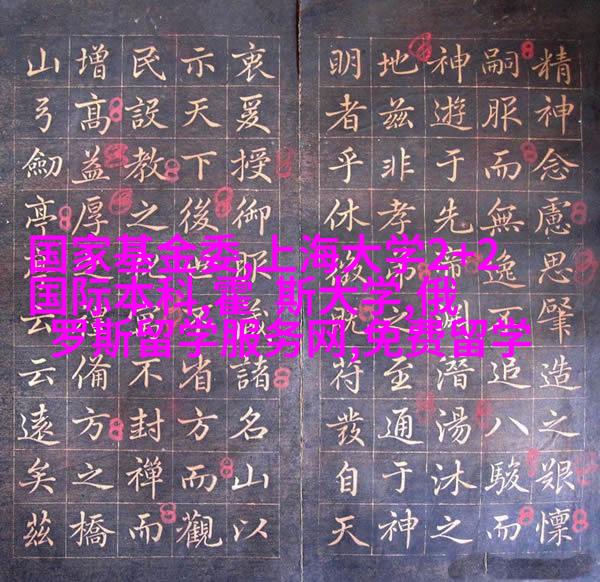 国家基金委,上海大学2+2
国际本科,霍 斯大学,俄
罗斯留学服务网,免费留学
精神念慮思肇造之艱懍
嗣服而無逸不追八駿而
神遊于先帝潛湯沐之
地茲非孝之至通于神
明者乎休符發自天
衷爰授御服諸名山以
示天下後省方而觀
民設教之不封禪而
增高益厚俻方之橋
山弓劒亭云云遠矣茲